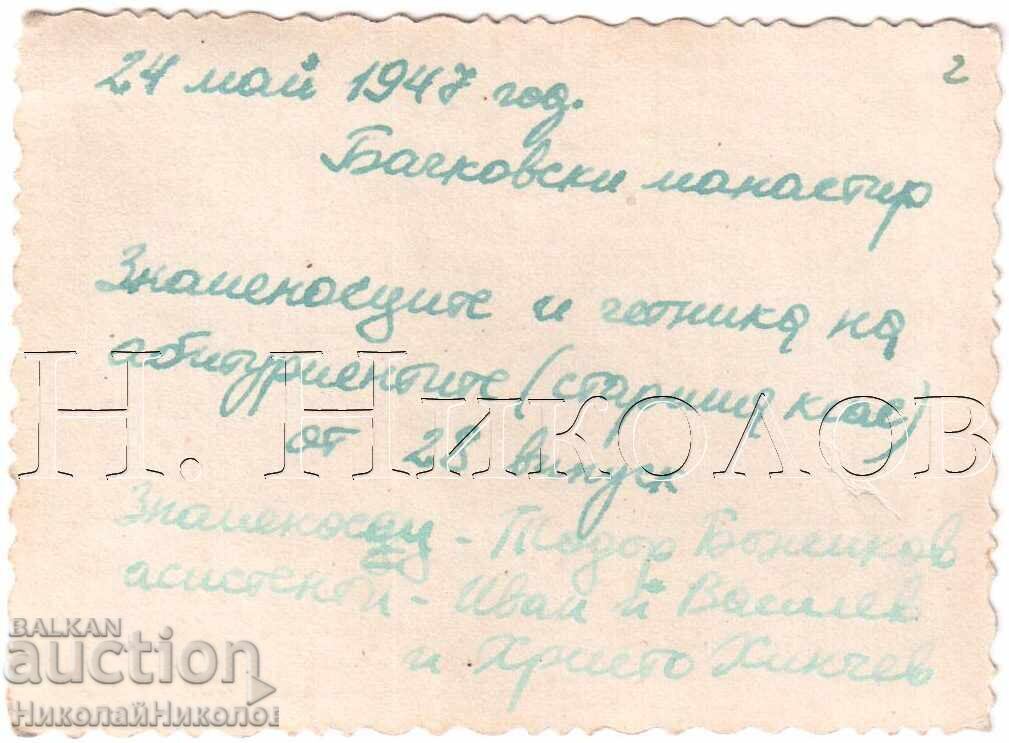 24 май 1947 год.
2
Бачковски манастир
Знаменосците и четника на
абитуриентите (старшия клас)
от 28 випуск
Н. Николов
Знаменосец - Тодор
асистенти - Иван Василев
и Христо Хинчев
BALKAN
auction
НиколайНиколов